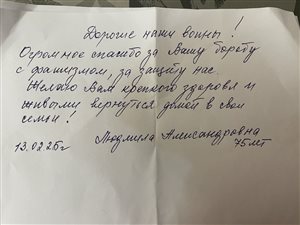 Дорогие наши воины!
Огромное спасибо за Вашу борьбу
с фашизмом, за защиту нас.
Желаю Вам крепкого здоровья и
живыми вернуться домой в свои
семьи!
Людмила Александровна
13.02.25г 75 лет